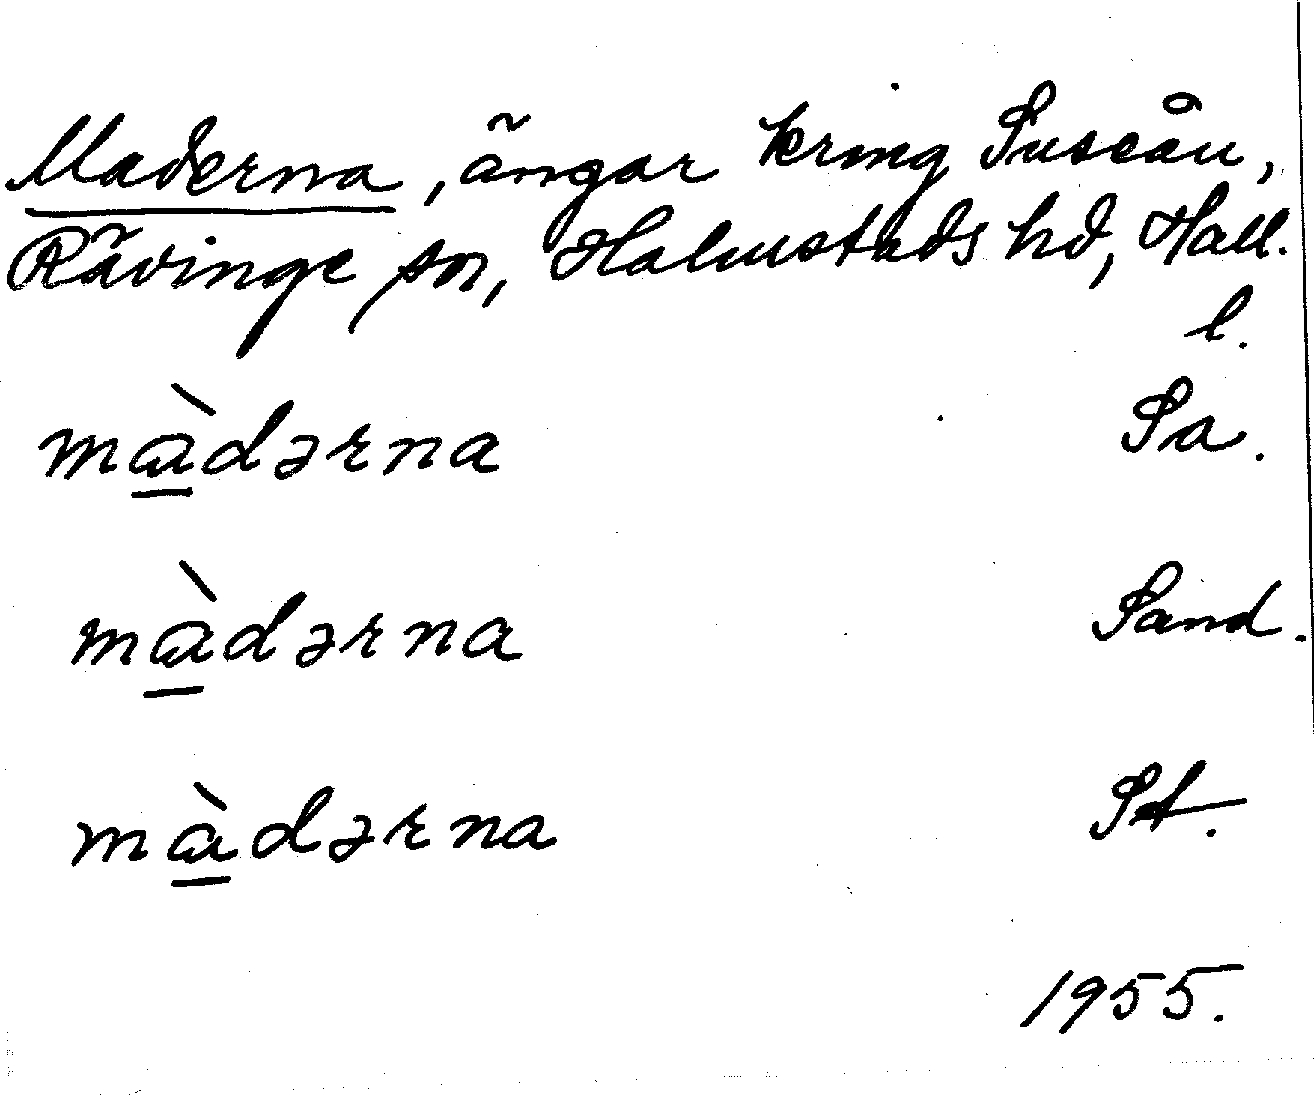 Maderna, ängar kring Suseån,
Rävinge sn, Halmstads hd, Hall.
l.
màdərna Sa.
màdərna Sand.
màdərna St.
1955.